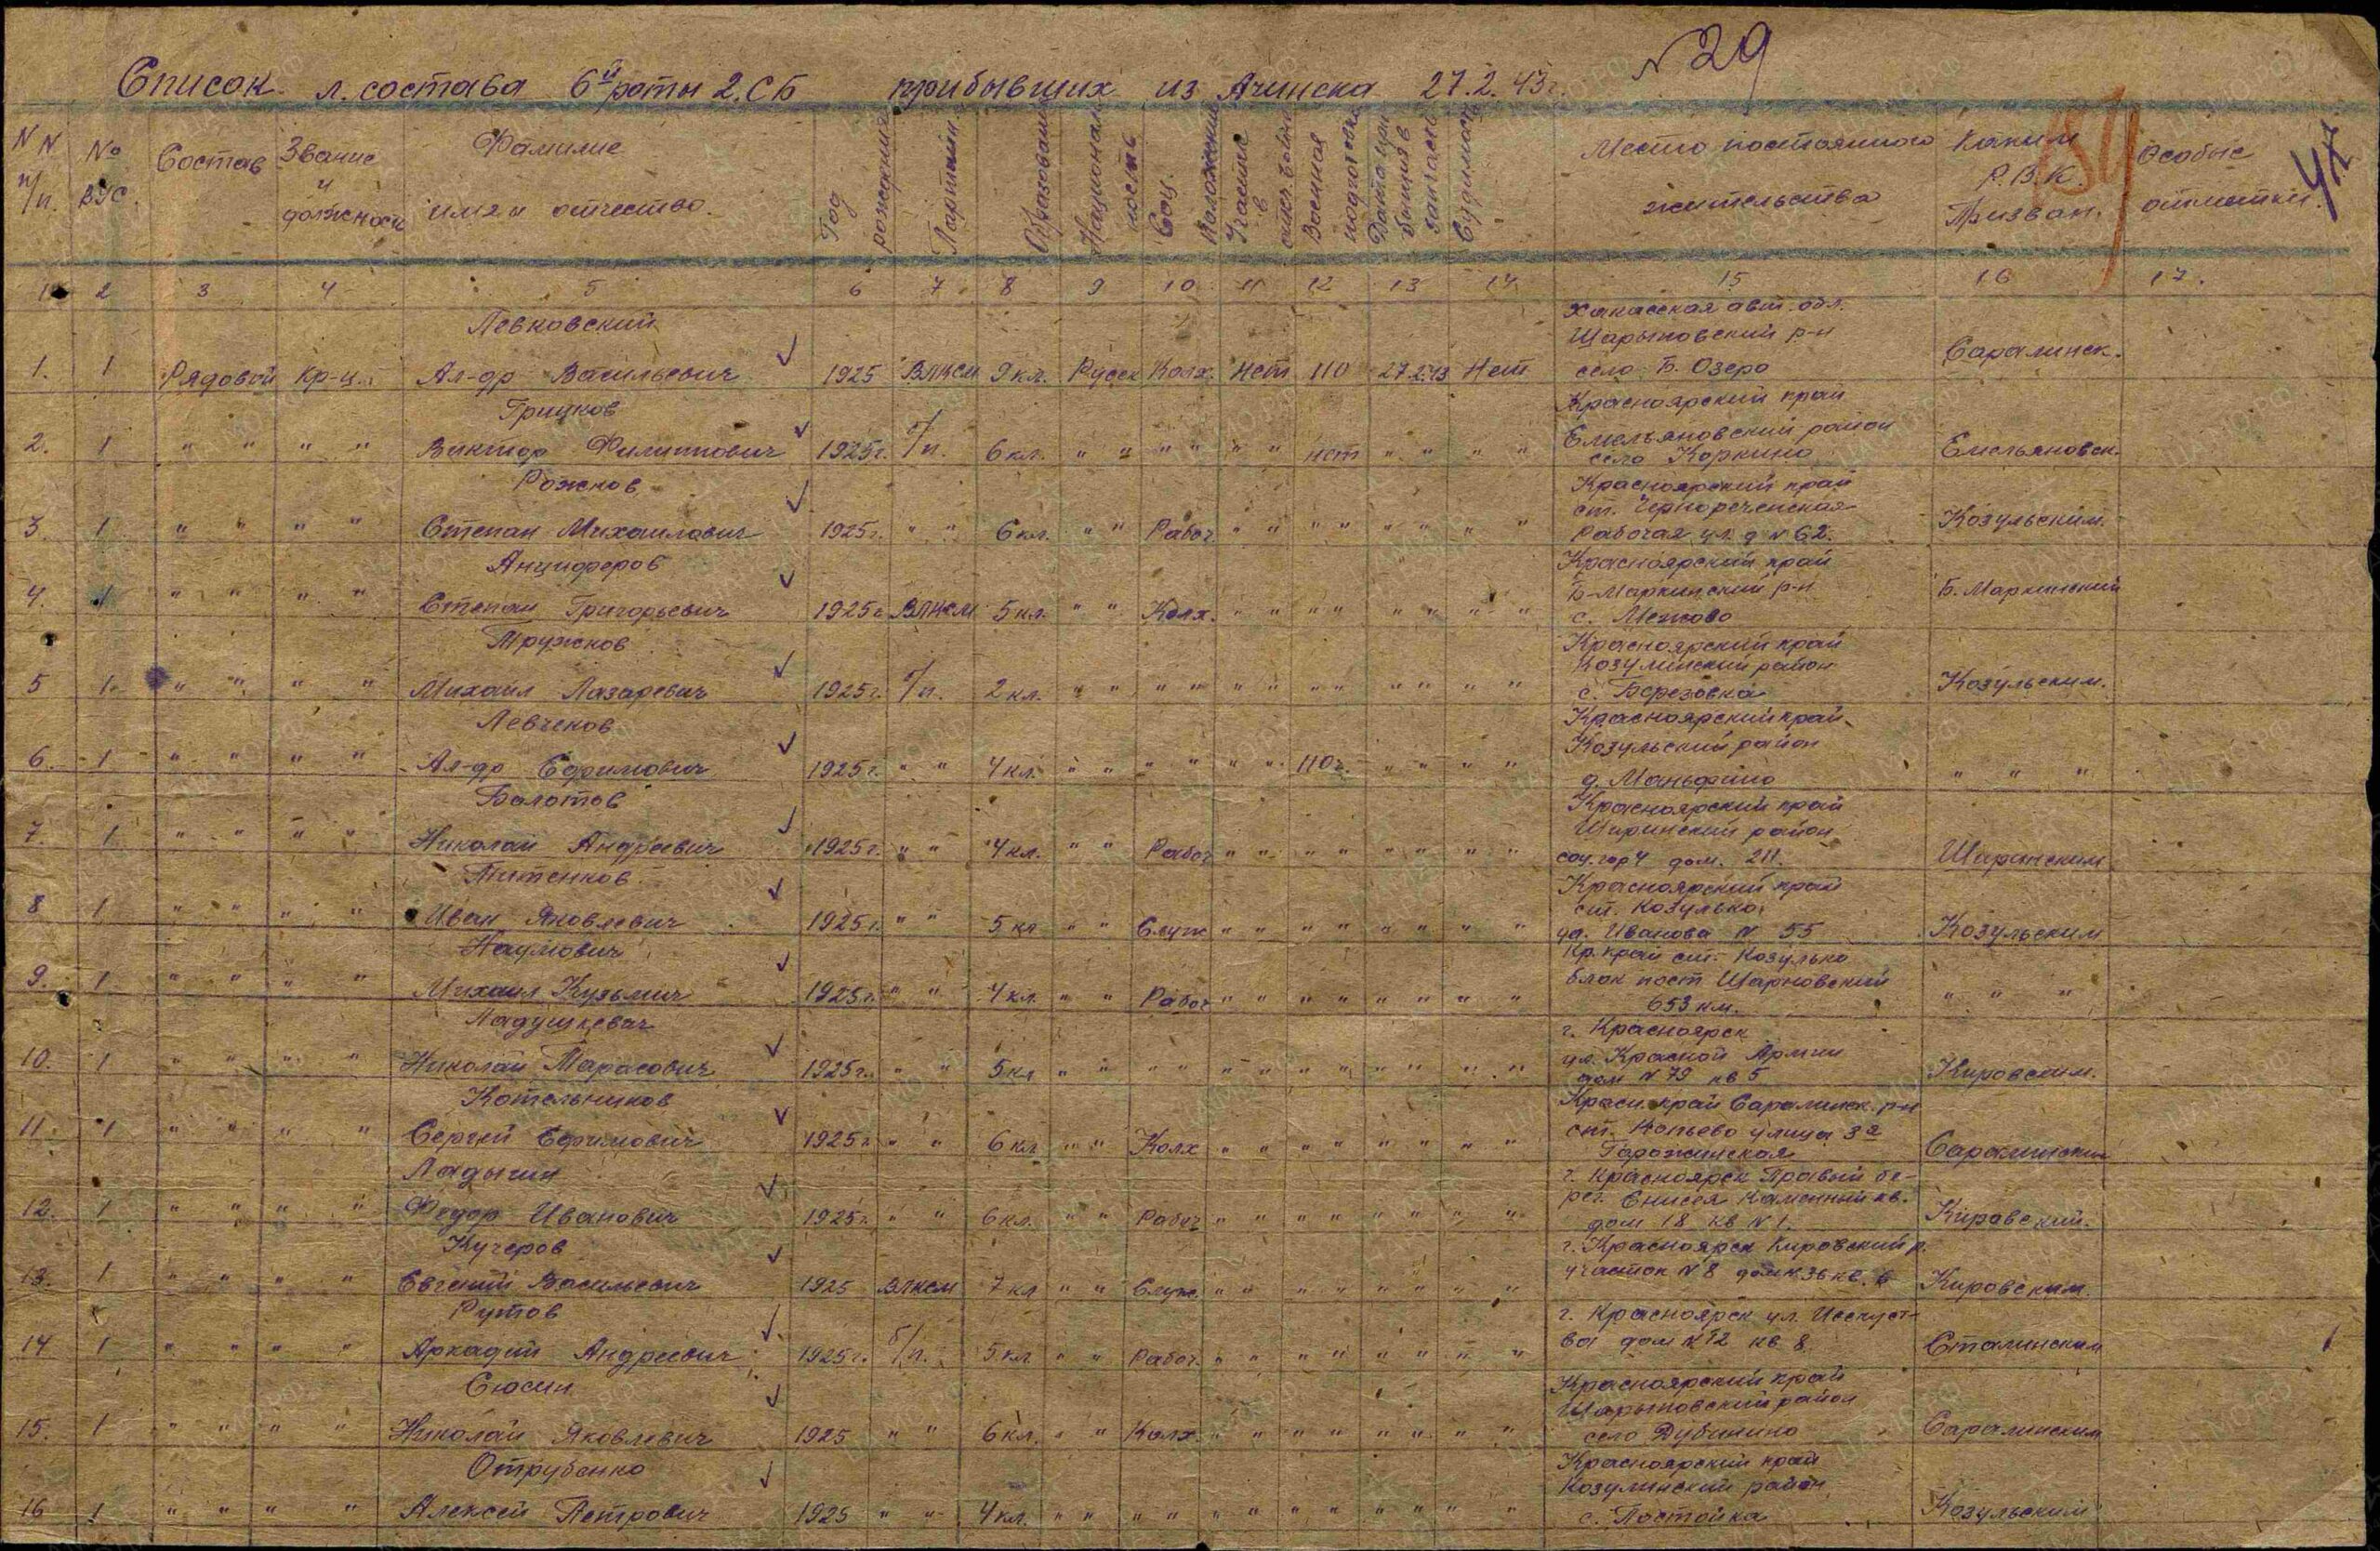 № 29
Список л. состава 6й роты 2. СБ прибывших из Ачинска 27.2.43г.
N N п/п. № ВУС. Состав Звание и должность Фамилие имя и отчество. Год рождения Партийн. Образование Национальность Соц. Положение Военная подготовка Судимость Место постоянного жительства Каким Р.В.К. Призван. Особые отметки. 47
1 2 3 4 5 6 7 8 9 10 11 12 13 14 15 16 17.
Левковский Хакасская авт. обл.
Шарыповский р-н
1. 1 Рядовой Кр-ц. Ал-др Васильевич 1925 ВЛКСМ 9 кл. Русск Колх. Нет 110 27.2.43 Нет село Б. Озеро Саралинск.
Грицков Красноярский край
Емельяновский район
2. 1 " " " " Виктор Филиппович 1925г. б/п. 6 кл. " " " " " " нет " " " " село Коркино Емельяновск.
Рожков Красноярский край
ст. Чернореченская
3. 1 " " " " Степан Михайлович 1925г. " " 6 кл. " " Рабоч " " " " " " " " Рабочая ул. д № 62. Козульским.
Анциферов Красноярский край
Б-Муртинский р-н
4. 1 " " " " Степан Григорьевич 1925г ВЛКСМ 5 кл. " " Колх. " " " " " " " " с. Межово
Тружков Красноярский край
Козулинский район
5 1 " " " " Михаил Лазаревич 1925г. б/п. 2 кл. " " " " " " " " " " " " с. Березовка Козульским.
Левченков Красноярский край
Козульский район
6. 1 " " " " Ал-др Ефимович 1925г. " " 4 кл. " " " " " " 110ч. " " " " " " "
Болотов Красноярский край
Ширинский район
7. 1 " " " " Николай Андреевич 1925г. " " 4 кл. " " Рабоч " " " " " " " " соц. гор 4 дом. 211. Ширинским
Титенков Красноярский край
ст. Козулька
8 1 " " " " Иван Яковлевич 1925г. " " 5 кл " " Служ " " " " " " " " ул. Иванова № 55 Козульским
Наумович Кр. край ст. Козулька
блок пост Шарловский
9. 1 " " " " Михаил Кузьмич 1925г. " " 4 кл. " " Рабоч " " " " " " " " 653 км. " " "
Ладушкевич г. Красноярск
ул. Красной Армии
10. 1 " " " " Николай Тарасович 1925г. " " 5 кл " " " " " " " " " " " " дом № 79 кв 5 Кировским.
Котельников Красн. край Саралинск. р-н
ст. Копьево улица 3я
11. 1 " " " " Сергей Ефимович 1925г. " " 6 кл " " Колх " " " " " " " " Саралинским
Ладыгин г. Красноярск Правый бе-
рег. Енисея Каменный кв.
12. 1 " " " " Федор Иванович 1925г. " " 6 кл. " " Рабоч " " " " " " " " дом 18 кв № 1. Кировский.
Кучеров г. Красноярск Кировский р.
13. 1 " " " " Евгений Васильевич 1925 ВЛКСМ 7 кл " " Служ. " " " " " " " " участок № 8 дом № 36 кв. 6 Кировским.
Рутов г. Красноярск ул. Искуст-
14 1 " " " " Аркадий Андреевич 1925г. б/п. 5 кл. " " Рабоч. " " " " " " " " ва дом № 12 кв 8. Сталинским
Сюсин Красноярский край
Шарыповский район
15. 1 " " " " Николай Яковлевич 1925 " " 6 кл. " " Колх. " " " " " " " " село Дубинино Саралинским
Отрубенко Красноярский край
Козулинский район
16 1 " " " " Алексей Петрович 1925 " " 4 кл. " " " " " " " " " " " " с. Постойка Козульским